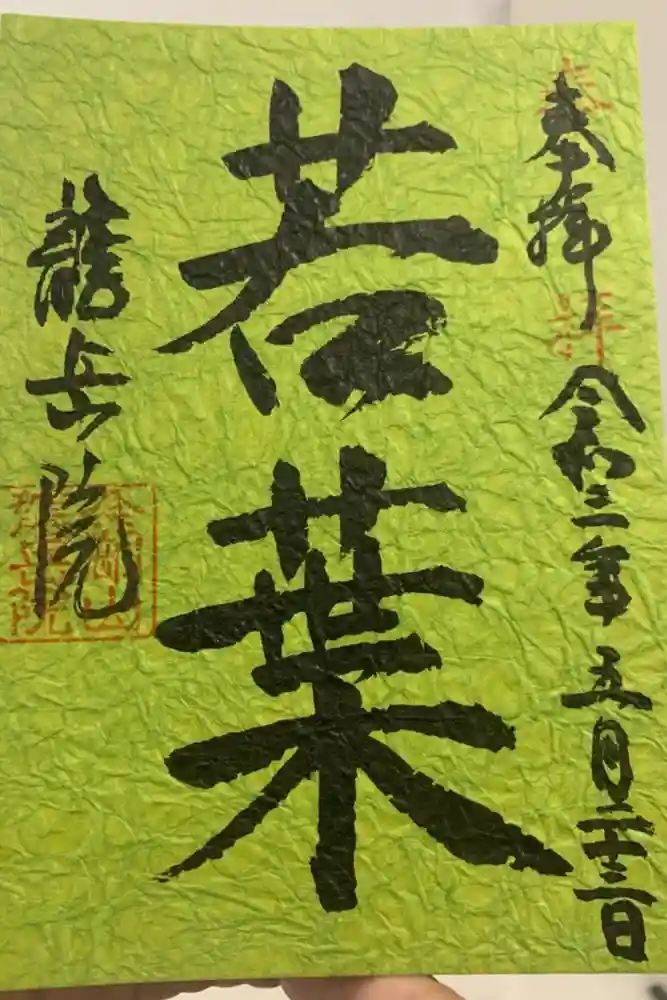 奉拝
令和三年五月二十三日
若葉
岳院